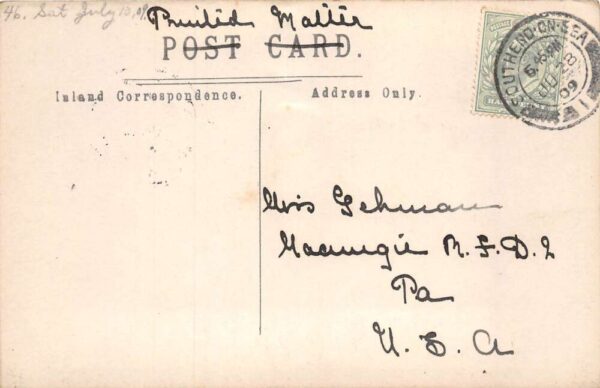 46. Sat July 10, 09.
Printed Matter
POST CARD.
Inland Correspondence.
Address Only.
SOUTHEND-ON-SEA
09
Miss Gehman
Macungie R. F. D. 2
Pa
U. S. A